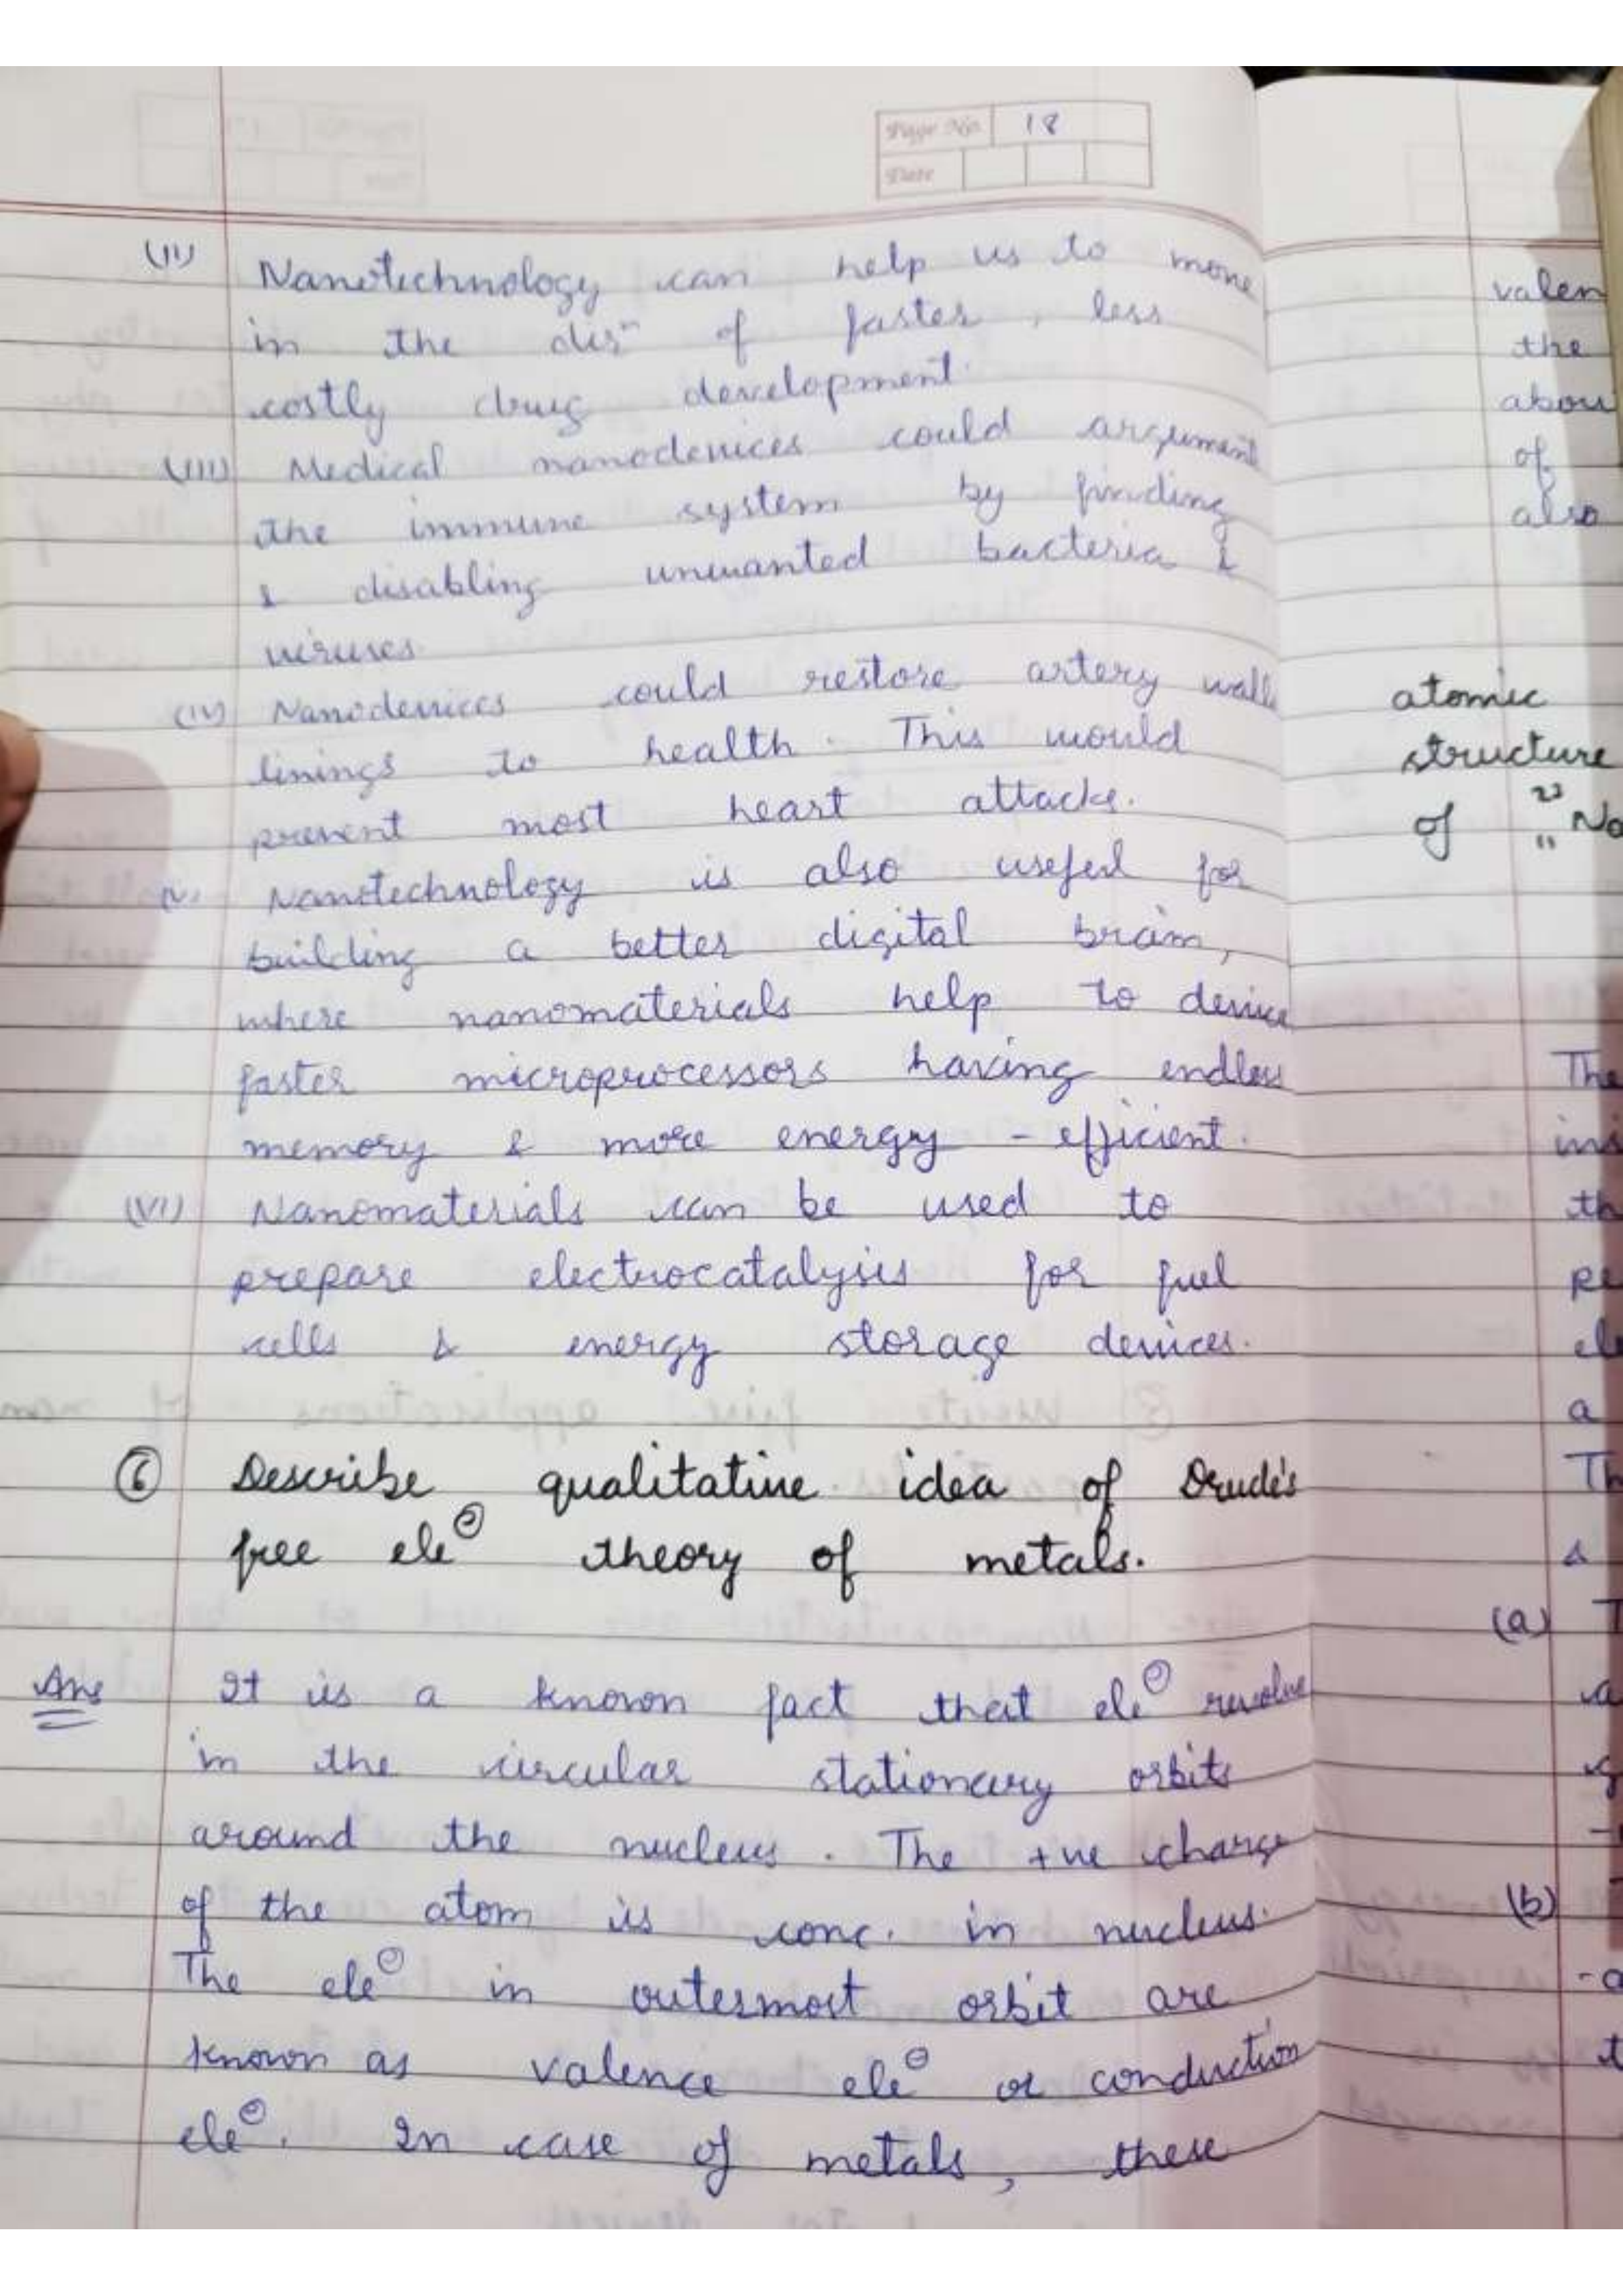 Page No. 18
Date
(II) Nanotechnology can help us to move
in the dirⁿ of faster, less
costly drug development.
(III) Medical nanodevices could argument
the immune system by finding
& disabling unwanted bacteria &
viruses.
(IV) Nanodevices could restore artery wall
linings to health. This would
prevent most heart attacks.
V. Nanotechnology is also useful for
building a better digital brain,
where nanomaterials help to device
faster microprocessors having endless
memory & more energy - efficient.
(VI) Nanomaterials can be used to
prepare electrocatalysis for fuel
cells & energy storage devices.
⑥ Describe qualitative idea of Drude's
free ele⊖ theory of metals.
Ans It is a known fact that ele⊖ revolve
in the circular stationary orbits
around the nucleus. The +ve charge
of the atom is conc. in nucleus.
The ele⊖ in outermost orbit are
known as valence ele⊖ or conduction
ele⊖. In case of metals, these
valen
the
abou
of
also
atomic
structure
of "Na
The
ins
th
re
ele
a
Th
&
(a) T
(b)